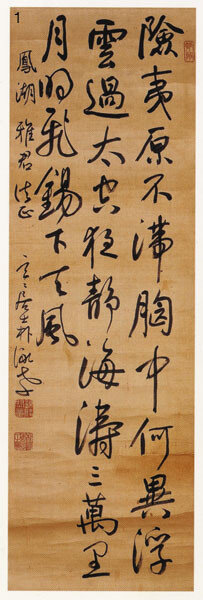 1
險夷原不滯胸中何異浮
雲過太空夜靜海濤三萬里
月明飛錫下天風
鳳湖雅君法正
玄玄居士朴泳孝